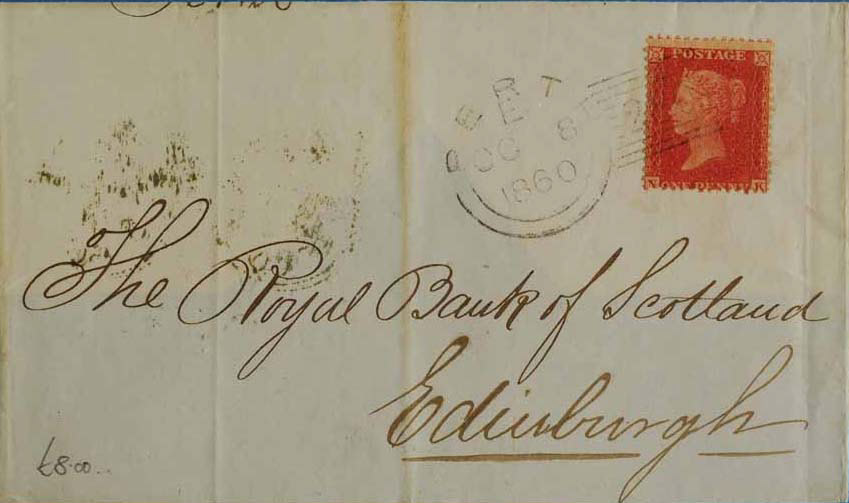 POSTAGE
PERT
E
OC 8
1860
N ONE PENNY K
The Royal Bank of Scotland
Edinburgh
£8.00..